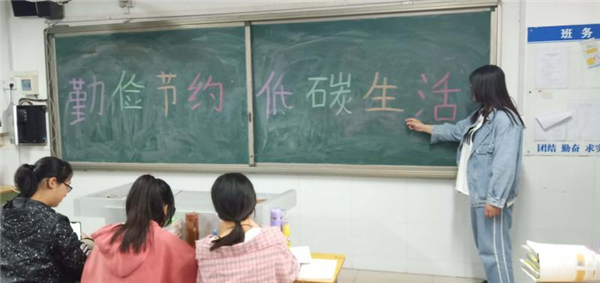 勤俭节约 低碳生活
班务
团结 勤奋 求实